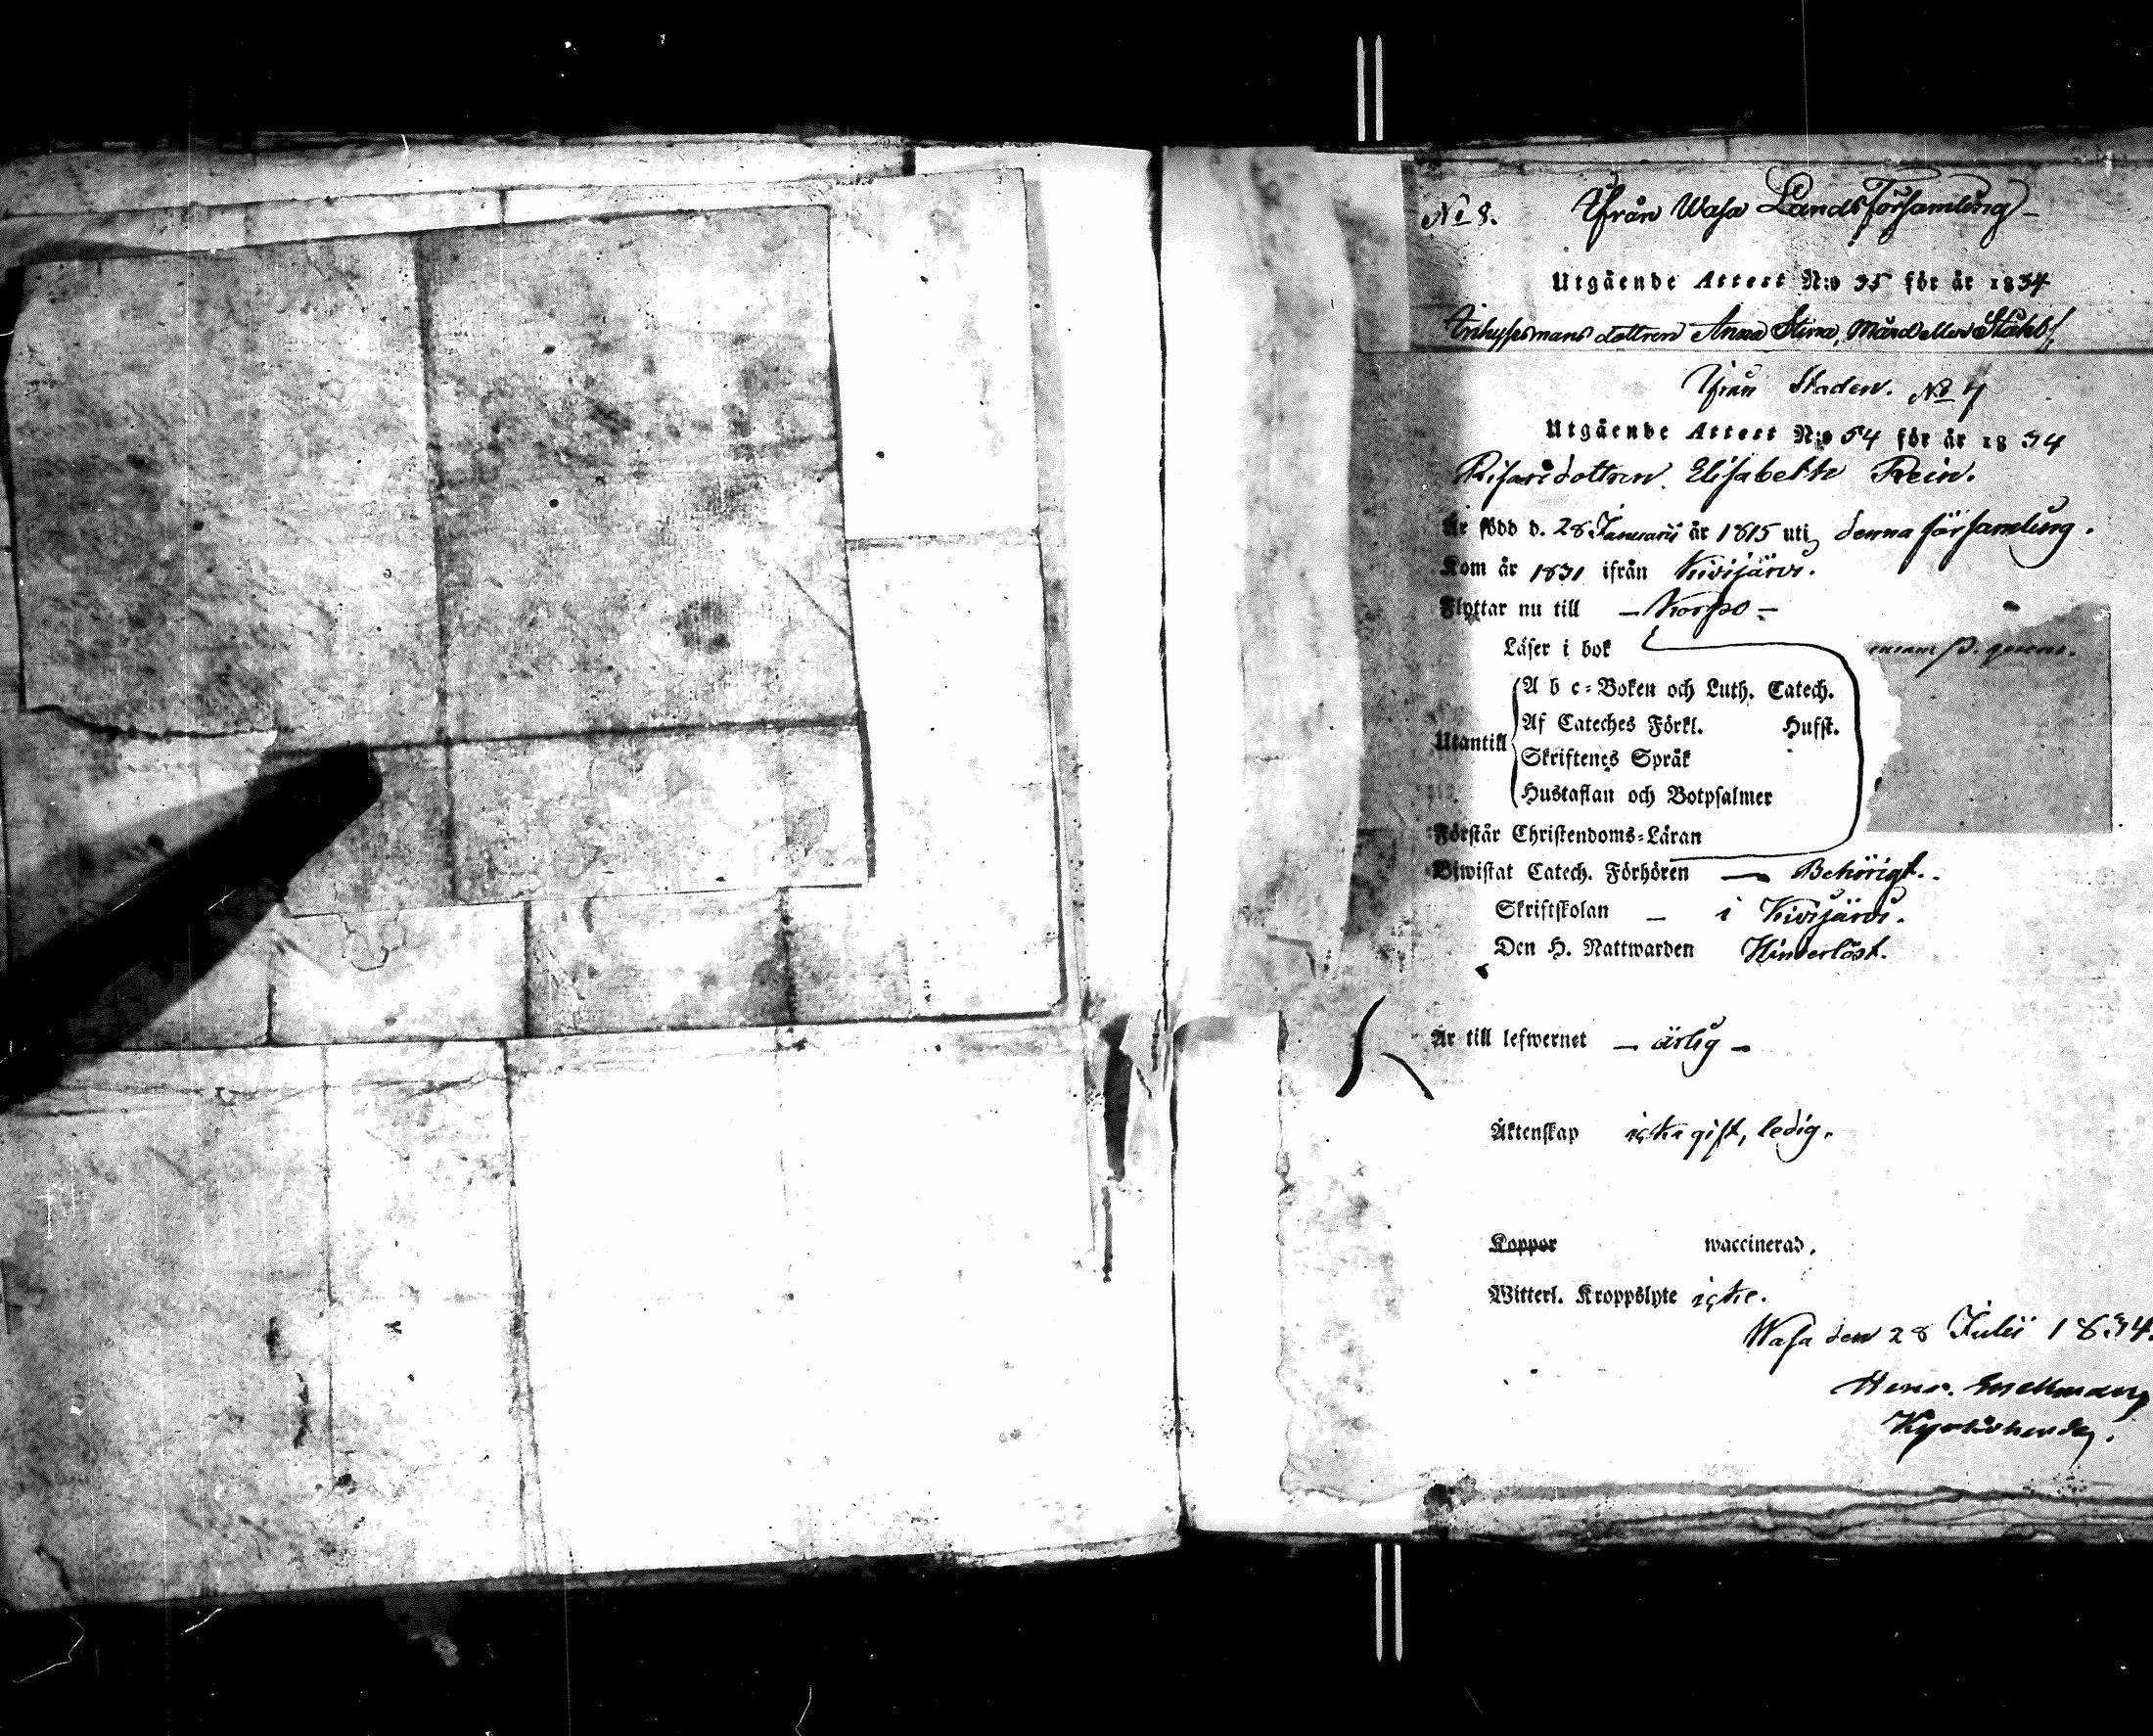 No 8. Ifrån Wasa Lands Församling
Utgående Attest N:o 35 för år 1834
Inhysesmans dottren Anna Stina,
Ifrån Staden. No 7
Utgående Attest N:o 54 för år 1834
dottren Elisabeth Rein.
Är född d. 28 Januarii år 1815 uti denna församling.
Kom år 1831 ifrån Kivijärvi.
Flyttar nu till – Korpo –
Läser i bok
Utantill
A b c-Boken och Luth. Catech.
Af Cateches Förkl. Hufst.
Skriftenes Språk
Hustaflan och Botpsalmer
Förstår Christendoms-Läran
Biwistat Catech. Förhören — Behörigt.
Skriftskolan – i Kivijärvi.
Den H. Nattwarden Hinderlöst.
Är till lefwernet – ärlig –
Äktenskap icke gift, ledig.
Koppor waccinerad.
Witterl. Kroppslyte icke.
Wasa den 28 Julii 1834.
Henr.